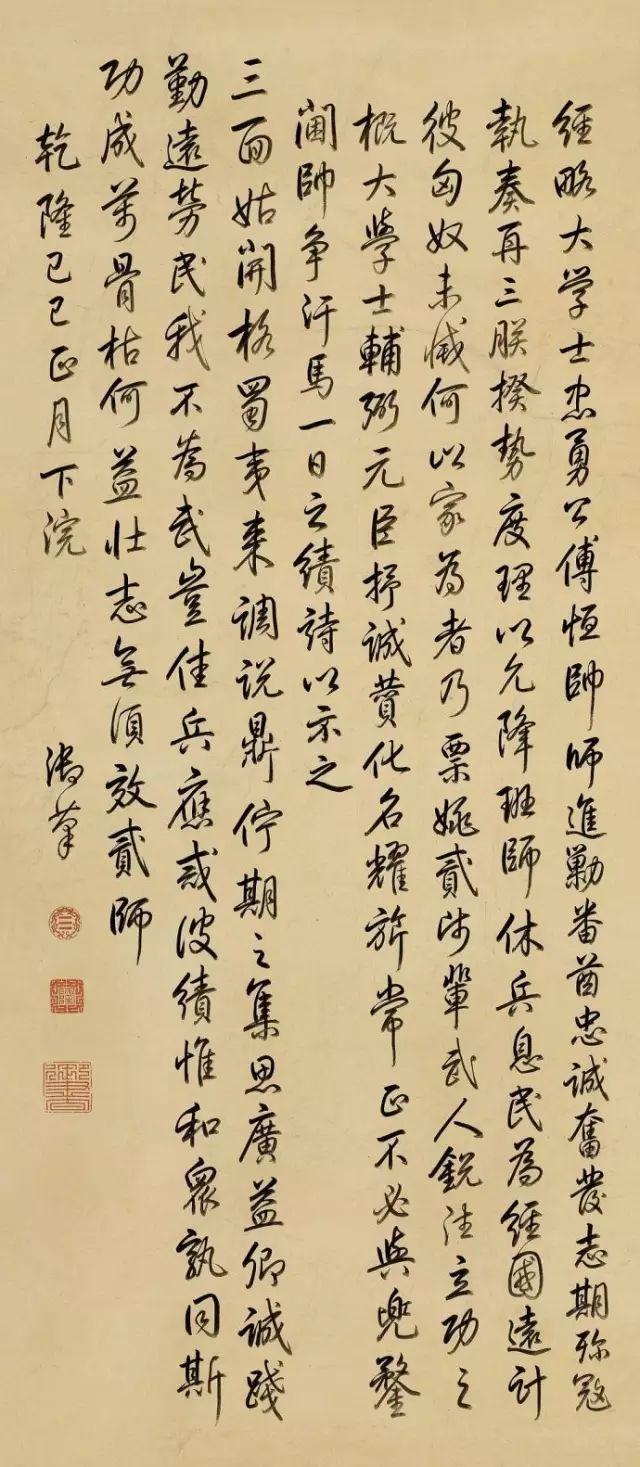 經略大学士忠勇公傅恒帥師進勦番酋忠誠奮發志期殄寇
執奏再三朕揆勢度理以允降班師休兵息民為經國遠計
彼匈奴未滅何以家為者乃票姚貳師輩武人銳往立功之
概大學士輔弼元臣抒誠贊化名耀旂常正不必與兜鍪
閫帥争汗馬一日之績詩以示之
三面姑開格蜀夷来調說鼎佇期之集思廣益卿誠踐
勤遠勞民我不為武豈佳兵應戒彼績惟和衆孰同斯
功成萬骨枯何益壯志無須效貳師
乾隆己巳正月下浣
御筆